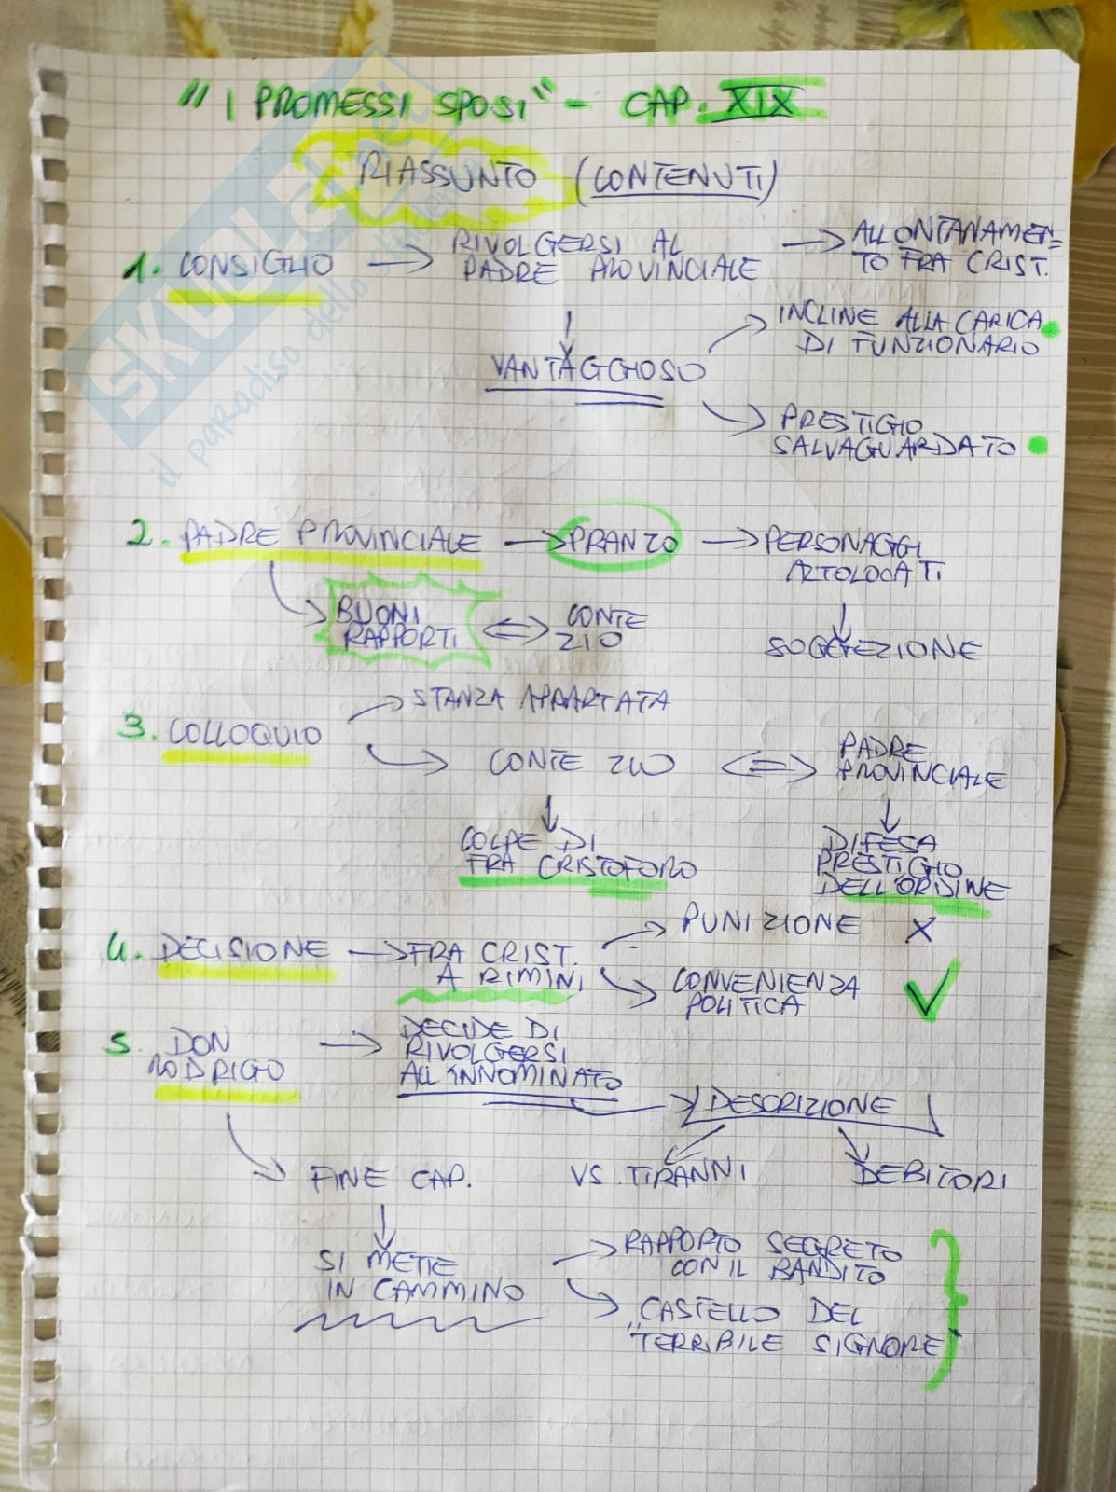 "I PROMESSI SPOSI" - CAP. XIX
RIASSUNTO (CONTENUTI)
1. CONSIGLIO → RIVOLGERSI AL → ALLONTANAMEN=
PADRE PROVINCIALE TO FRA CRIST.
INCLINE ALLA CARICA
DI FUNZIONARIO
VANTAGGIOSO
PRESTIGIO
SALVAGUARDATO
2. PADRE PROVINCIALE → PRANZO → PERSONAGGI
ALTOLOCATI
BUONI
RAPPORTI ⇔ CONTE
ZIO
SOGGEZIONE
3. COLLOQUIO
STANZA APPARTATA
CONTE ZIO ⇔ PADRE
PROVINCIALE
COLPE DI
FRA CRISTOFORO
DIFESA
PRESTIGIO
DELL'ORDINE
4. DECISIONE → FRA CRIST.
A RIMINI
PUNIZIONE X
CONVENIENZA
POLITICA ✓
5. DON
RODRIGO → DECIDE DI
RIVOLGERSI
ALL'INNOMINATO
DESCRIZIONE
FINE CAP.
VS. TIRANNI
DEBITORI
SI METTE
IN CAMMINO
RAPPORTO SEGRETO
CON IL BANDITO
CASTELLO DEL
"TERRIBILE SIGNORE
SKUOLA.net
il paradiso dello